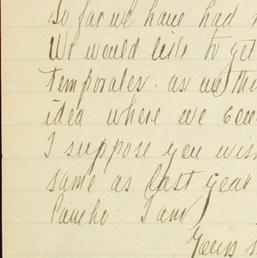 So far we have had
We would like to get
temporales. as we thi
idea where we can
I suppose you wis
same as last year
Pancho I am
Yours s